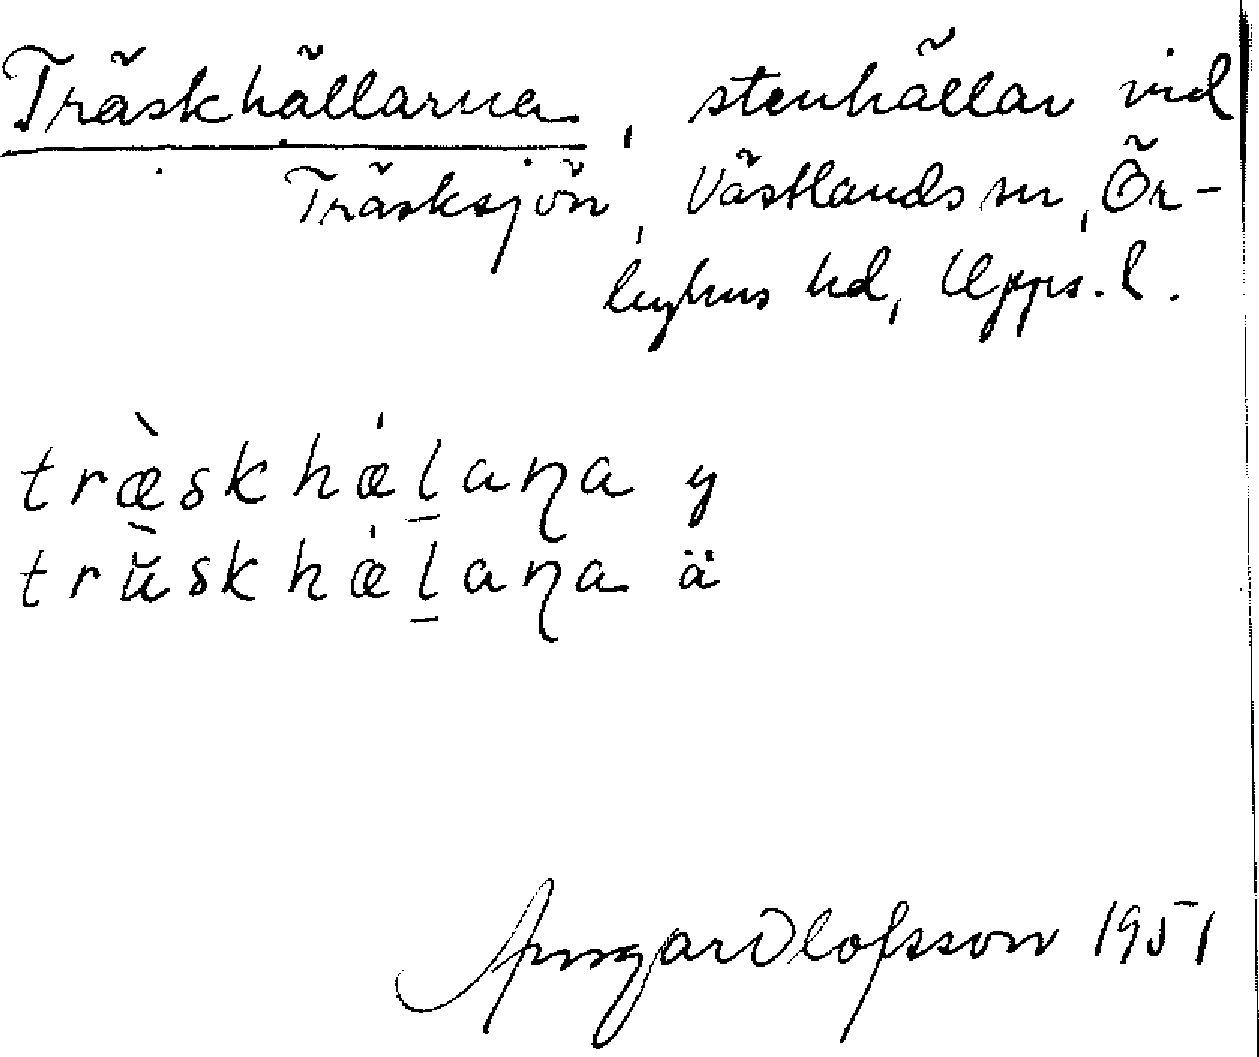 Träskhällarna, stenhällar vid
Träsksjön, Västlands sn, Ör-
byhus hd, Upps. l.
træ̀skhæ̍l̠aɳa y
trὺ̆skhæ̍l̠aɳa ä
Ansgar Olofsson 1951